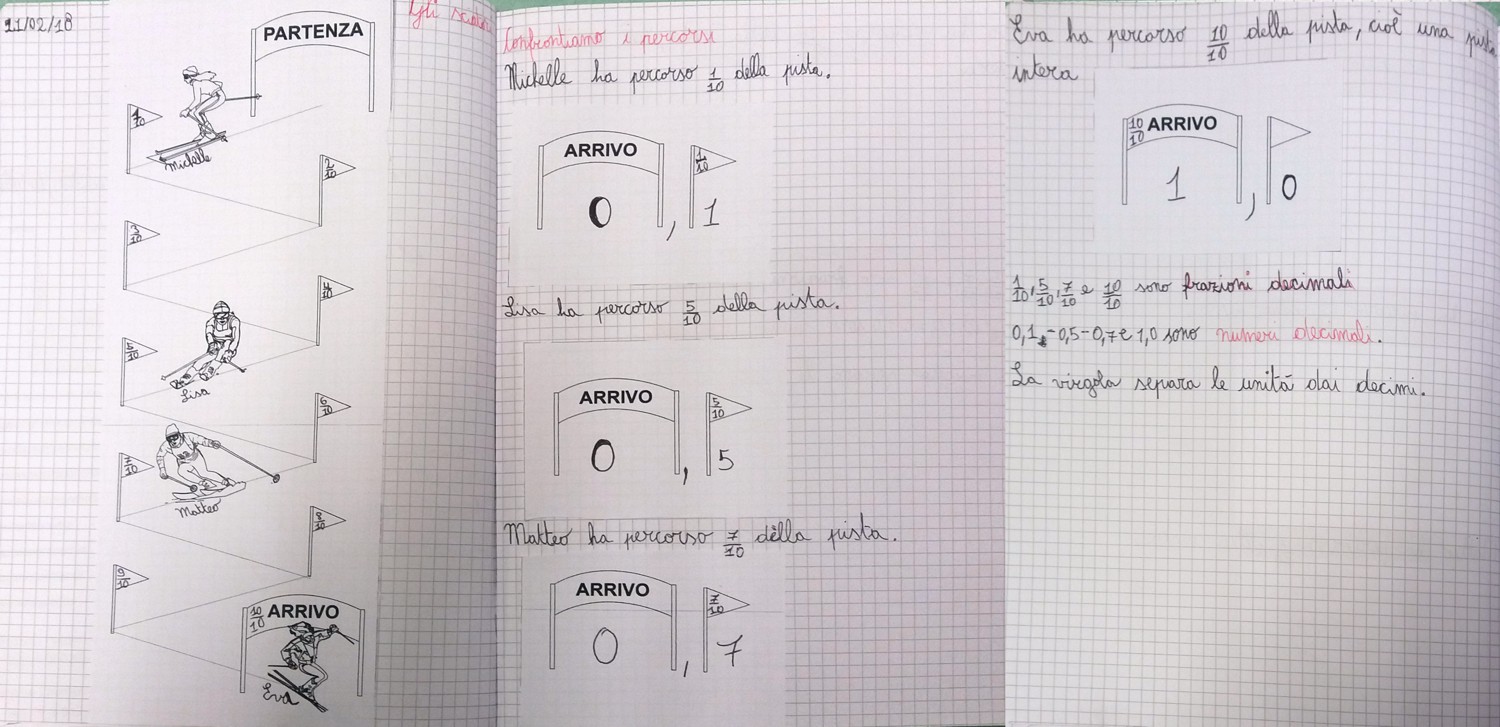 21/02/18
Gli sciatori
PARTENZA
1/10
Michelle
2/10
3/10
4/10
5/10
Lisa
6/10
7/10
Matteo
8/10
9/10
10/10 ARRIVO
Eva
Confrontiamo i percorsi
Michelle ha percorso 1/10 della pista.
ARRIVO 1/10
0, 1
Lisa ha percorso 5/10 della pista.
ARRIVO 5/10
0, 5
Matteo ha percorso 7/10 della pista.
ARRIVO 7/10
0, 7
Eva ha percorso 10/10 della pista, cioè una pista
intera
10/10 ARRIVO
1, 0
1/10, 5/10, 7/10 e 10/10 sono frazioni decimali
0,1 - 0,5 - 0,7 e 1,0 sono numeri decimali.
La virgola separa le unità dai decimi.